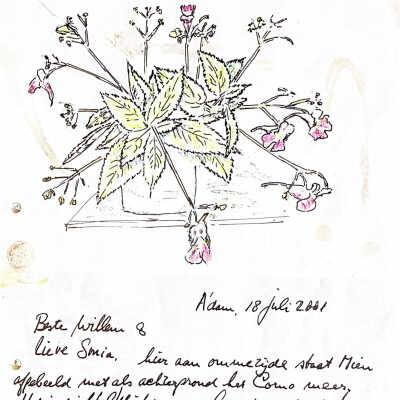 A'dam, 18 juli 2001
Beste Willem &
Lieve Sonia,
hier aan ommezijde staat Mien
afgebeeld met als achtergrond het Como meer,